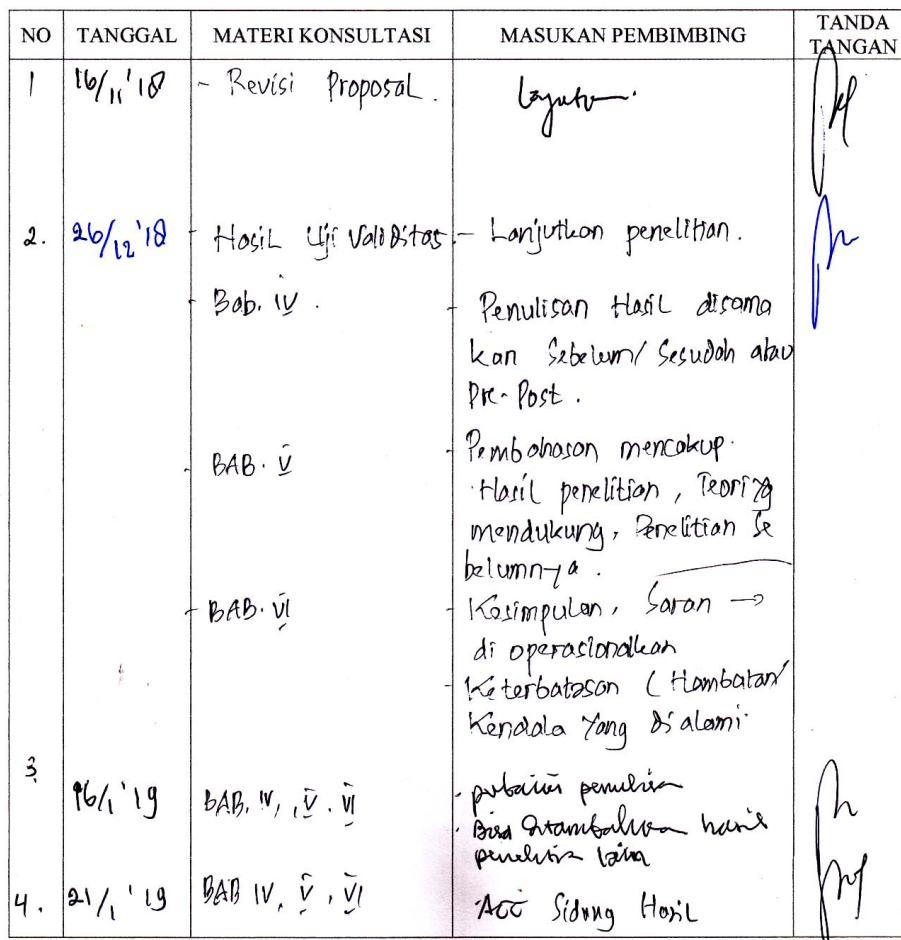 NO TANGGAL MATERI KONSULTASI MASUKAN PEMBIMBING TANDA TANGAN
1 16/11 '18 - Revisi Proposal.
2. 26/12 '18 - Hasil Uji Validitas. - Lanjutkan penelitian.
- Bab. IV. - Penulisan Hasil disama
kan Sebelum/ Sesudah atau
Pre-Post.
- BAB. V - Pembahasan mencakup.
Hasil penelitian, Teori yg
mendukung, Penelitian Se
belumnya.
- BAB. VI - Kesimpulan, Saran →
di operasionalkan
- Keterbatasan (Hambatan/
Kendala Yang Dialami.
3. 16/1 '19 BAB. IV, V. VI - perbaiki penulisan
- Bisa ditambahkan hasil
penelitian lain
4. 21/1 '19 BAB IV, V, VI ACC Sidang Hasil